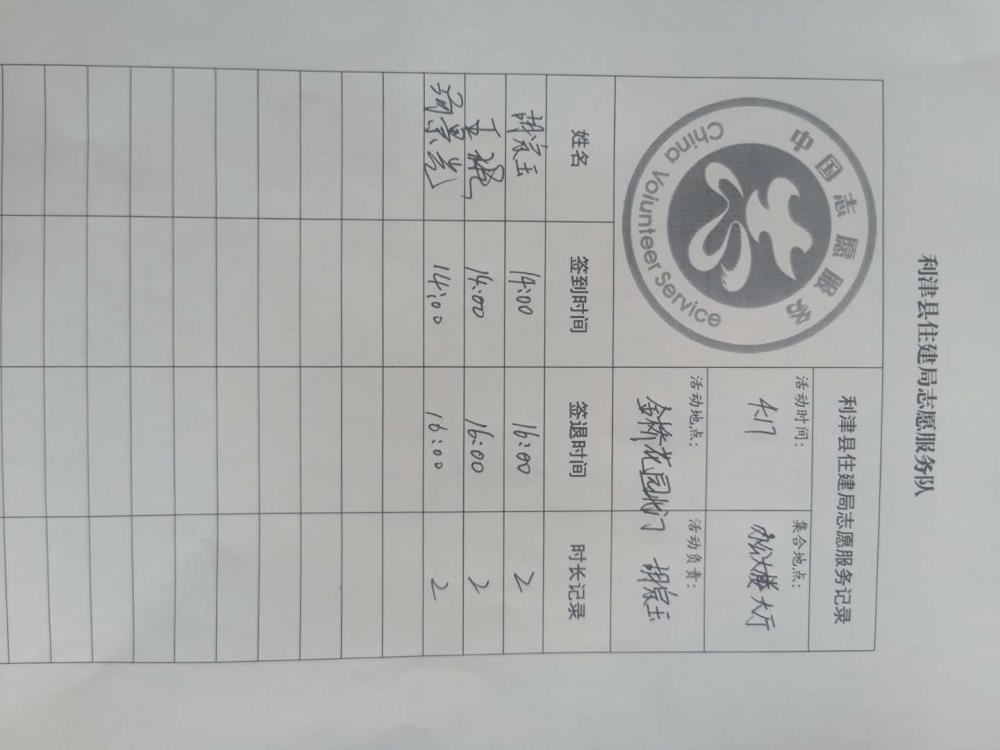 利津县住建局志愿服务队
中国志愿服务
China Volunteer Service
利津县住建局志愿服务记录
活动时间：
4.17
集合地点：
办公大楼大厅
活动地点：
金桥花园北门
活动负责：
胡宗玉
姓名 签到时间 签退时间 时长记录
胡宗玉 14:00 16:00 2
王 14:00 16:00 2
景 14:00 16:00 2